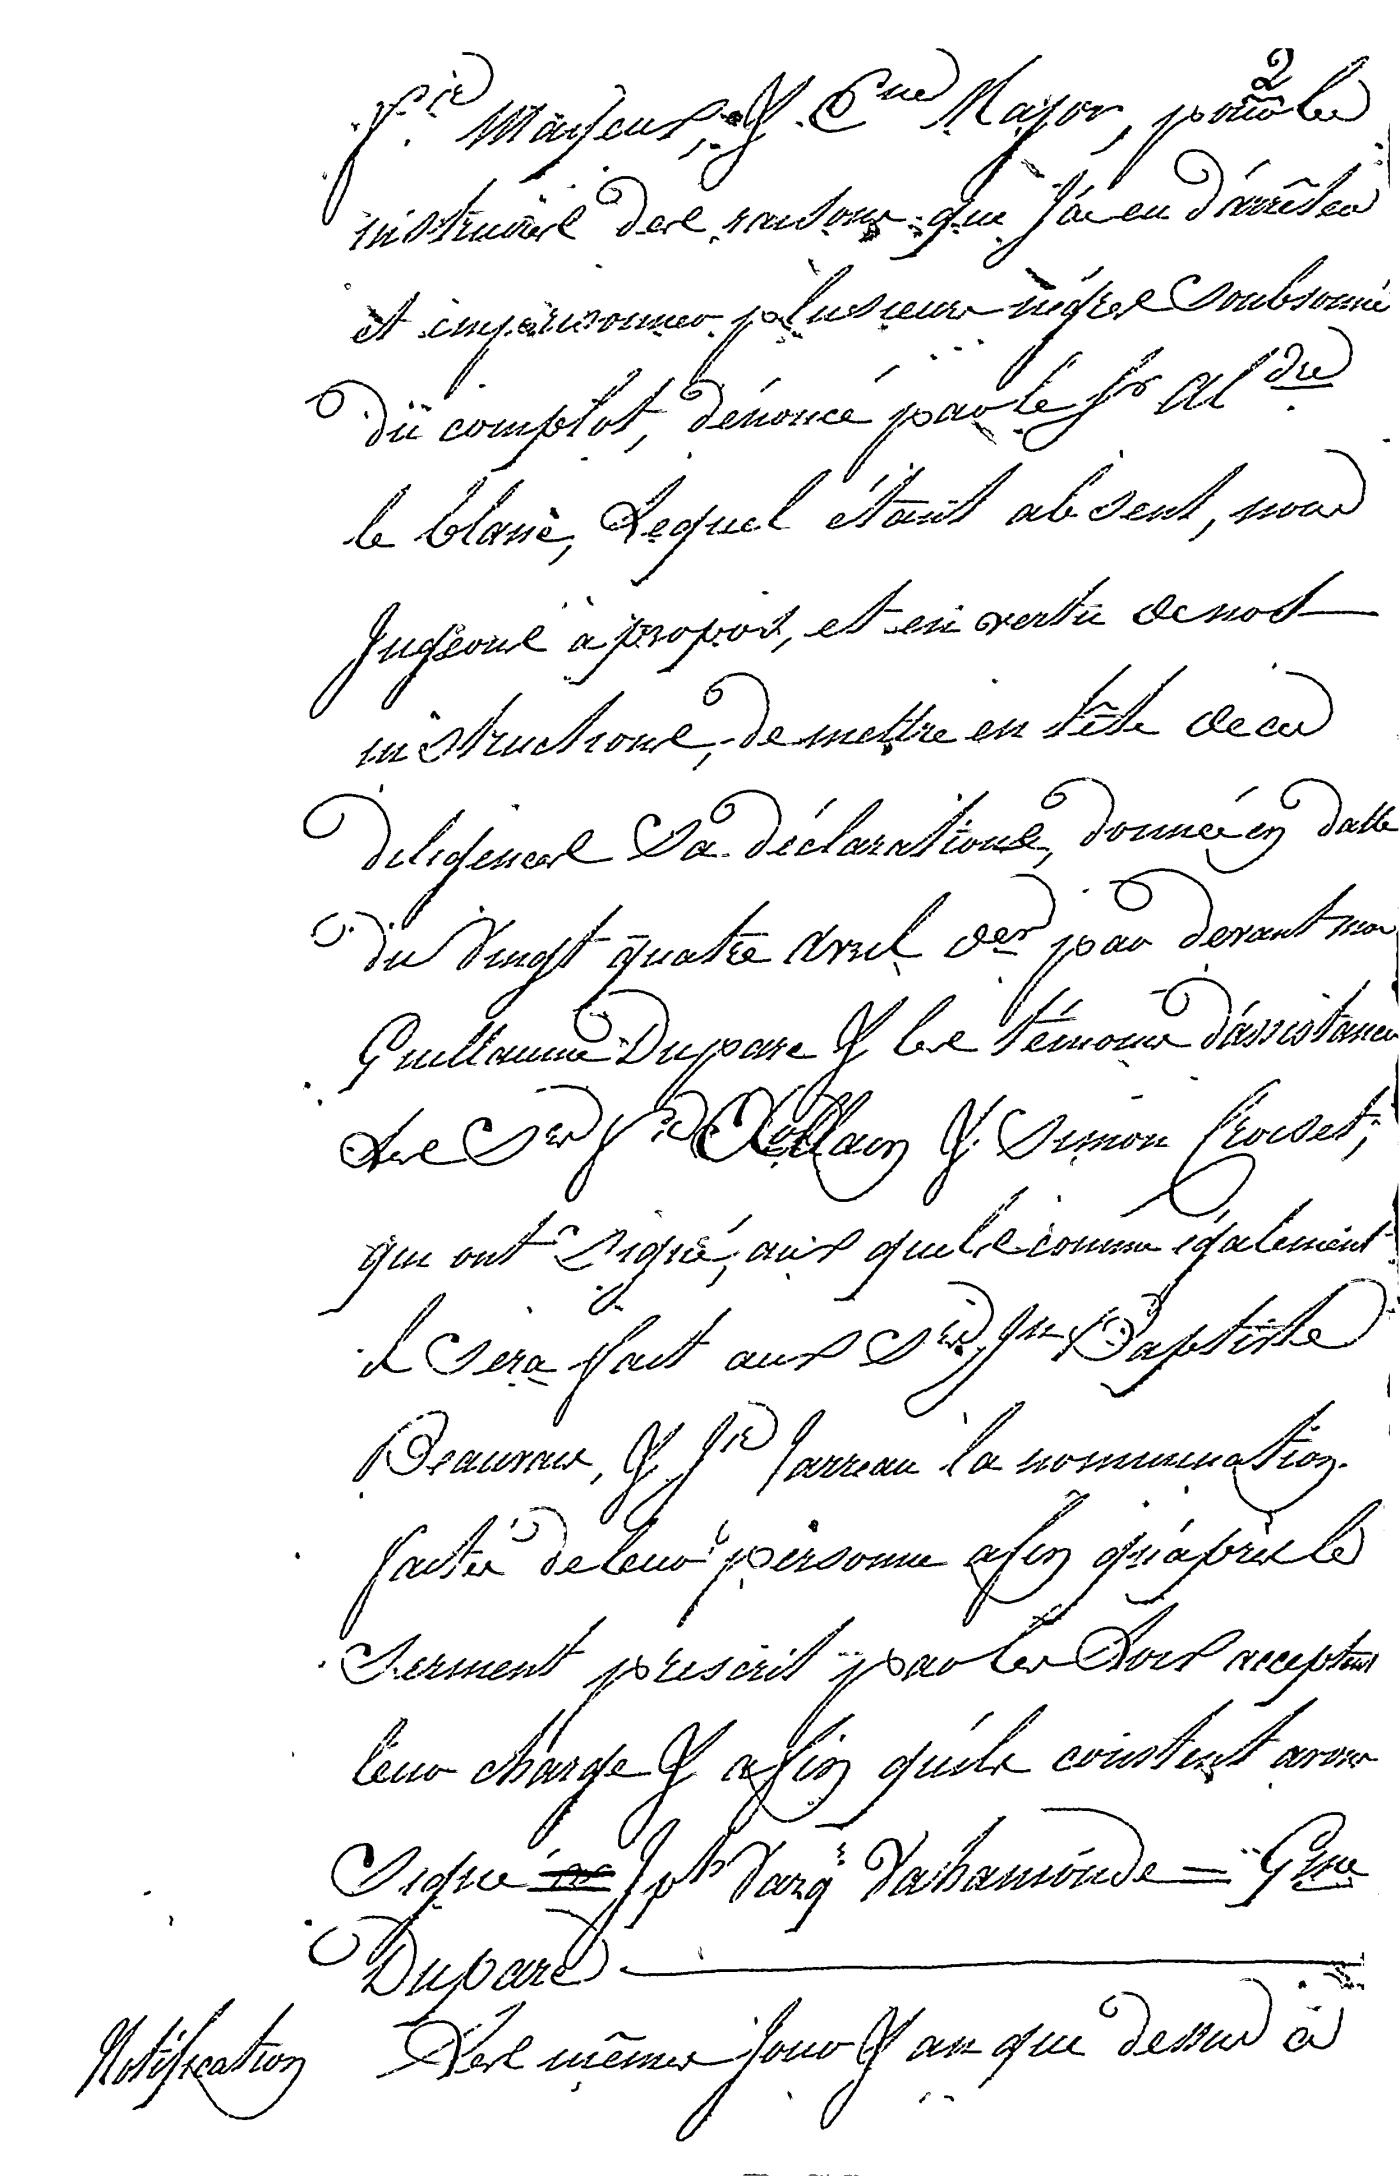 2
f.re Mayeux, & C.ne Major, pour les
instruire des raisons que J'ai eu d'arrêter
et imprisonner plusieurs négres soubsonné
du complot, dénoncé par le Sr Al.dre
le blanc, Lequel étant absent, nous
Jugeons à propos, et en vertu de nos
instructions, de mettre en tête de ces
diligences Sa déclarations, donnée en datte
du Vingt quatre avril der par devant moi
Guillaume Duparc & les témoins d'assistance
Les Srs Collain & Simon Croiset,
qui ont Signé, aux quels comme également
il Sera fait aux Srs Jn Baptiste
Beauvais, & Jh Jarreau la nommination
faite de leur personne afin qu'après le
Serment prescrit par les Loix acceptent
leur charge & afin qu'ils constent avons
Signé Jph Varq.z Vahamonde = G.me
Duparc
Notification Les mêmes Jour & an que dessus à